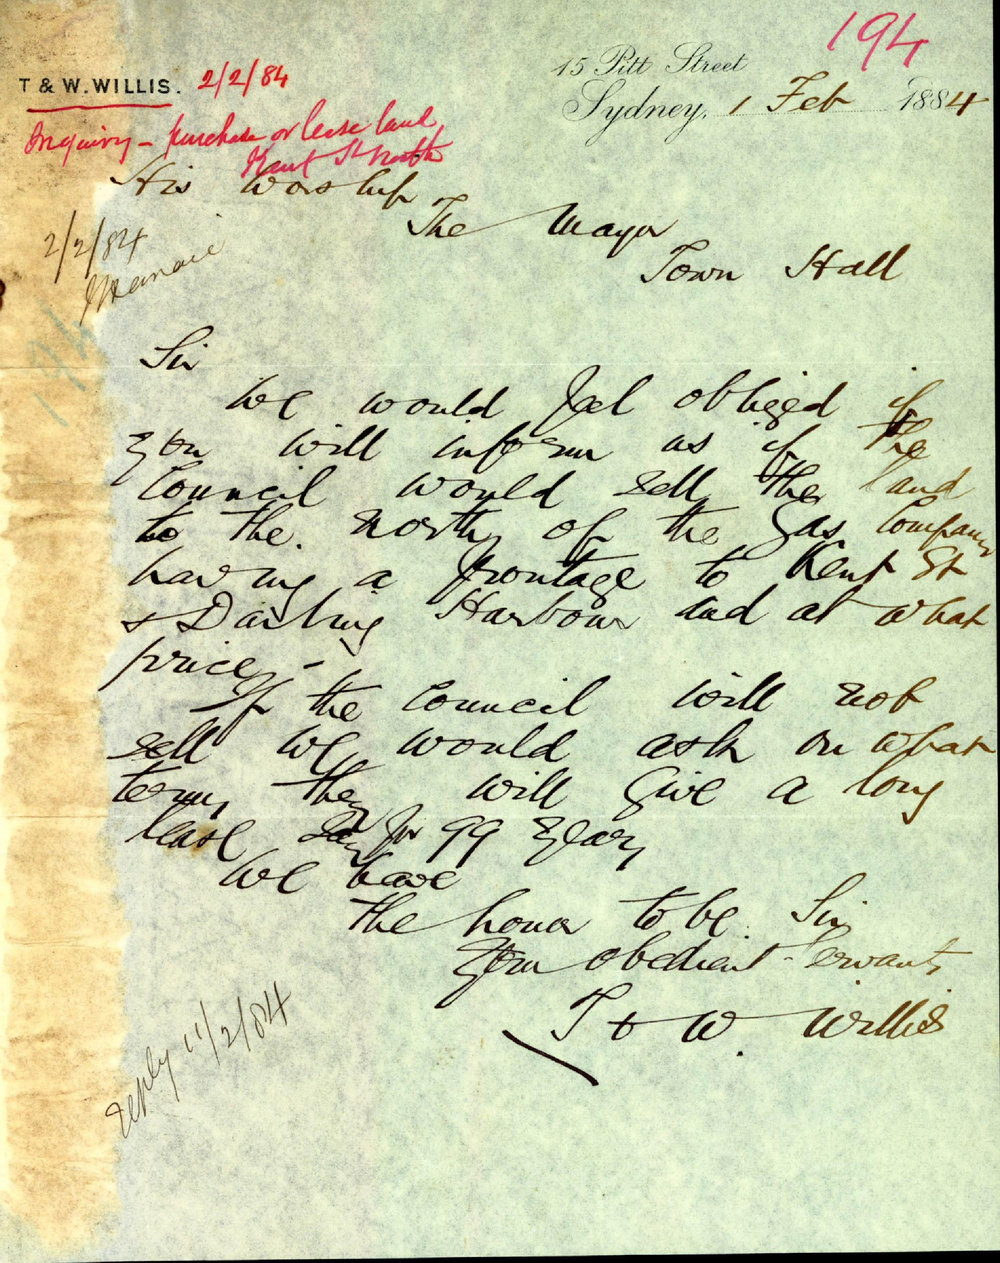 194
15 Pitt Street
T & W. WILLIS. 2/2/84
Sydney, 1 Feb 1884
Inquiry – purchase or lease land
Kent St North
His Worship
The Mayor
Town Hall
2/2/84
Sir
We would feel obliged if
you will inform us if the
Council would sell the land
to the North of the Gas Companys
having a frontage to Kent St
& Darling Harbour and at what
price –
If the Council will not
sell we would ask on what
terms they will give a long
lease say for 99 years
We have
the honor to be Sir
Your obedient Servants
T & W. Willis
reply 11/2/84